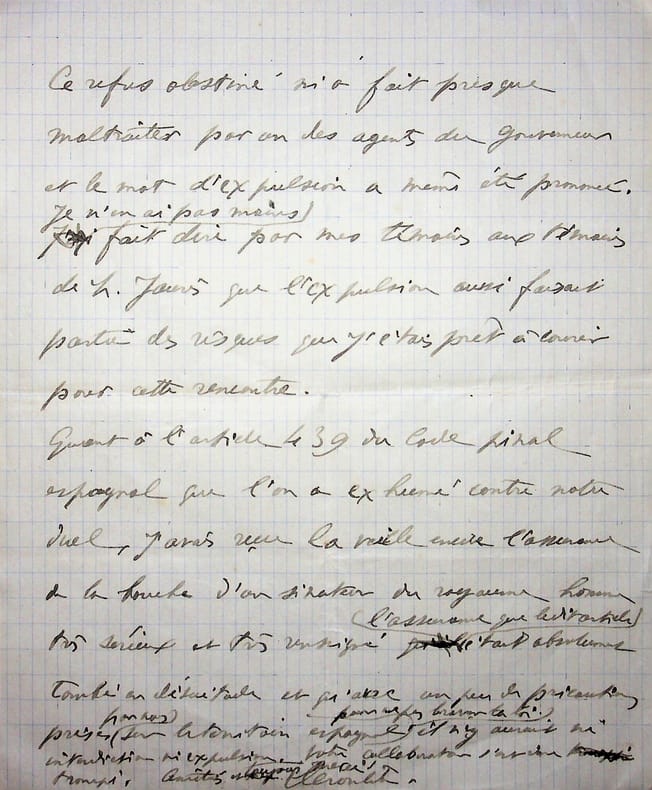 Ce refus obstiné m'a fait presque
maltraiter par un des agents du gouverneur
et le mot d'expulsion a même été prononcé.
Je n'en ai pas moins
fait dire par mes témoins aux témoins
de M. Jaurès que l'expulsion aussi faisait
partie des risques que j'étais prêt à courir
pour cette rencontre.
Quant à l'article 439 du Code pénal
espagnol que l'on a exhumé contre notre
duel, j'avais reçu la veille encore l'assurance
de la bouche d'un sénateur du royaume homme
(l'assurance que ledit article)
très sérieux et très renseigné était absolument
tombé en désuétude et qu'avec un peu de précautions
par nous) pour ne pas braver la loi)
prises (sur le territoire espagnol il n'y aurait ni
interdiction ni expulsion. Votre collaborateur s'est donc
trompé. Amitiés et merci
Déroulède.